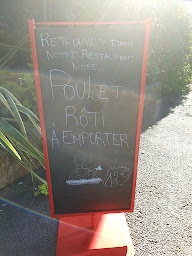 RETROUVEZ DANS
NOTRE RESTAURANT
NOTRE
POULET
RÔTI
À EMPORTER